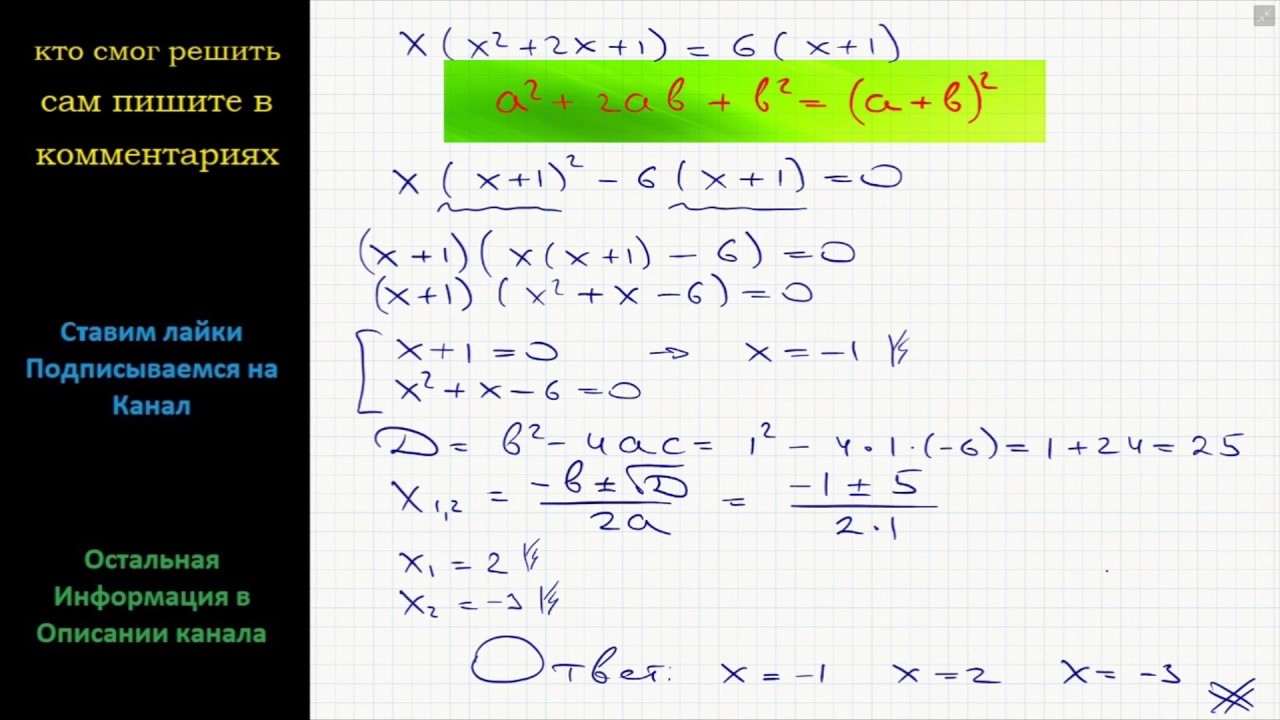 кто смог решить
сам пишите в
комментариях
Ставим лайки
Подписываемся на
Канал
Остальная
Информация в
Описании канала
x(x²+2x+1) = 6(x+1)
a² + 2ab + b² = (a+b)²
x(x+1)² − 6(x+1) = 0
(x+1)(x(x+1) − 6) = 0
(x+1)(x² + x − 6) = 0
x+1 = 0 → x = −1
x² + x − 6 = 0
D = b² − 4ac = 1² − 4·1·(−6) = 1+24 = 25
x₁,₂ = (−b ± √D)/(2a) = (−1 ± 5)/(2·1)
x₁ = 2
x₂ = −3
Ответ: x = −1 x = 2 x = −3